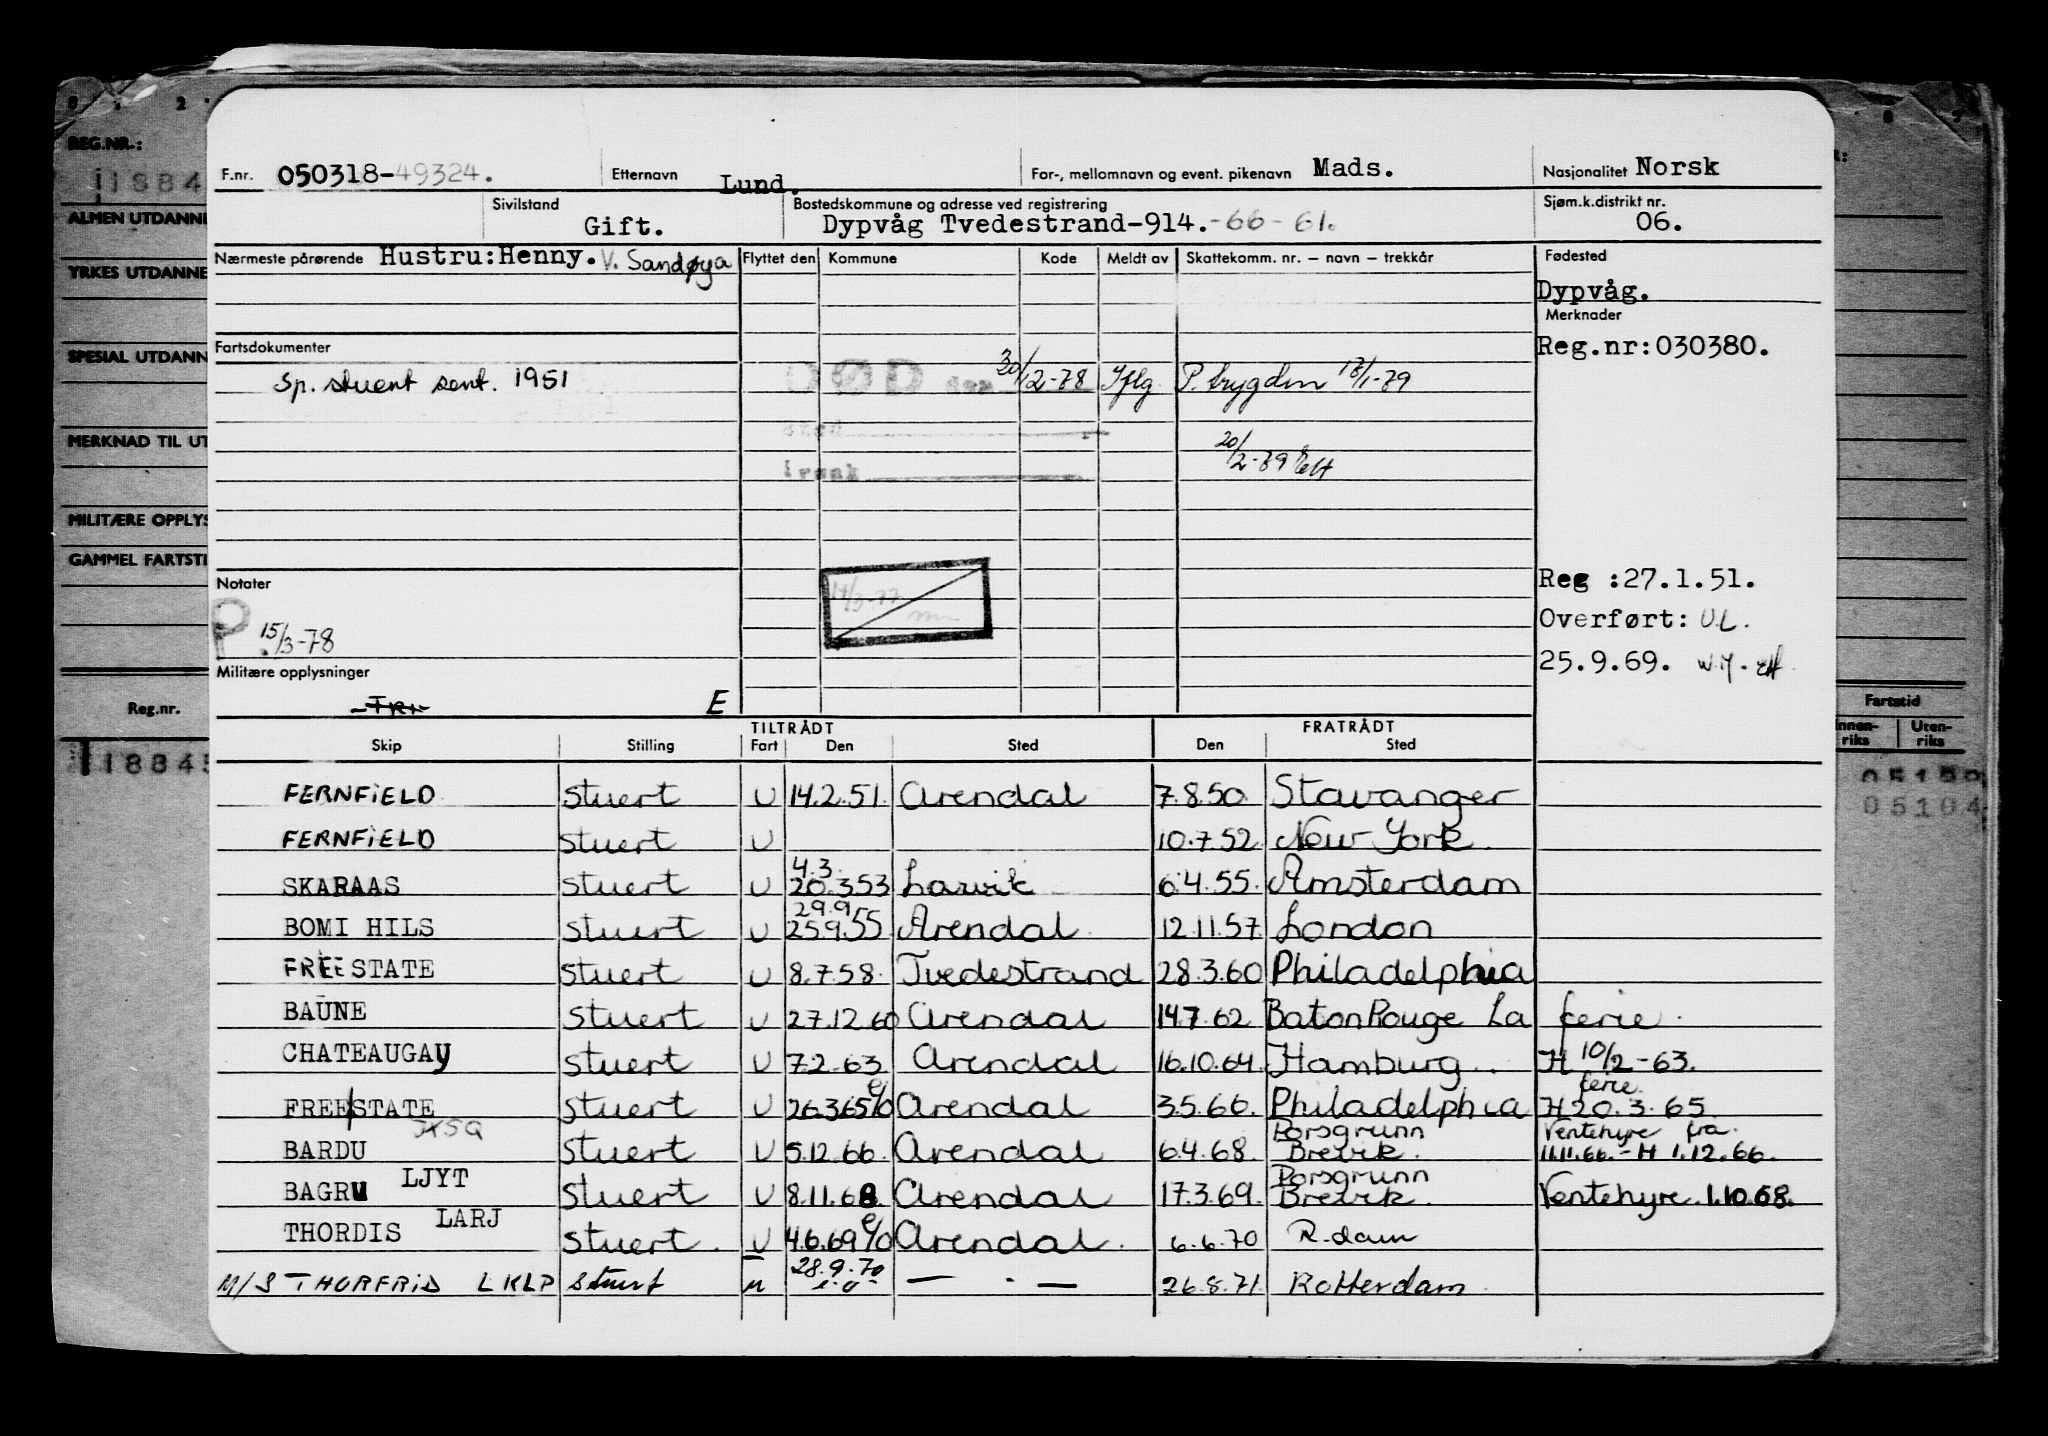 REG.NR.:
F.nr. 050318-49324. Etternavn Lund. For-, mellomnavn og event. pikenavn Mads. Nasjonalitet Norsk
ALMEN UTDANNE
Sivilstand Gift. Bostedskommune og adresse ved registrering Dypvåg Tvedestrand-914.-66-61. Sjøm.k.distrikt nr. 06.
YRKES UTDANNE
Nærmeste pårørende Hustru:Henny. V. Sandøya Flyttet den Kommune Kode Meldt av Skattekomm. nr. – navn – trekkår Fødested
Dypvåg.
Merknader
SPESIAL UTDANN
Fartsdokumenter Reg.nr:030380.
Sp. stuert sert. 1951 DØD den 30/12-78 Iflg. P. trygden
sted
MERKNAD TIL UT
20/2-79
trekk
MILITÆRE OPPLYS
GAMMEL FARTSTI
Notater Reg :27.1.51.
P 15/3-78 14/3-77 Overført: U.L.
25.9.69.
Militære opplysninger
E
Reg.nr. Fartstid
TILTRÅDT FRATRÅDT
Skip Stilling Fart Den Sted Den Sted Innen-riks Uten-riks
FERNFIELD stuert U 14.2.51. Arendal 7.8.50 Stavanger
FERNFIELD stuert U 10.7.52 New York
4.3.
SKARAAS stuert U 20.3.53 Larvik 6.4.55. Amsterdam
29.9
BOMI HILS stuert U 25.9.55 Arendal 12.11.57. London
FREESTATE stuert U 8.7.58. Tvedestrand 28.3.60 Philadelphia
BAUNE stuert U 27.12.60 Arendal 14.7.62 Baton Rouge La ferie.
CHATEAUGAY stuert U 7.2.63 Arendal 16.10.64 Hamburg. H 10/2-63.
ferie.
FREE/STATE stuert U 26.3.65 e/o Arendal 3.5.66. Philadelphia H 20.3.65.
JXSQ Porsgrunn Ventehyre fra.
BARDU stuert U 5.12.66. Arendal 6.4.68 Brevik. 11.11.66.-H 1.12.66.
LJYT Porsgrunn
BAGRU stuert U 8.11.68 Arendal 17.3.69. Brevik. Ventehyre 1.10.68.
LARJ
THORDIS stuert. U 4.6.69 e/o Arendal. 6.6.70 R.dam
28.9.70
M/S THORFRID LKLP stuert u e.o. — . — 26.8.71. Rotterdam